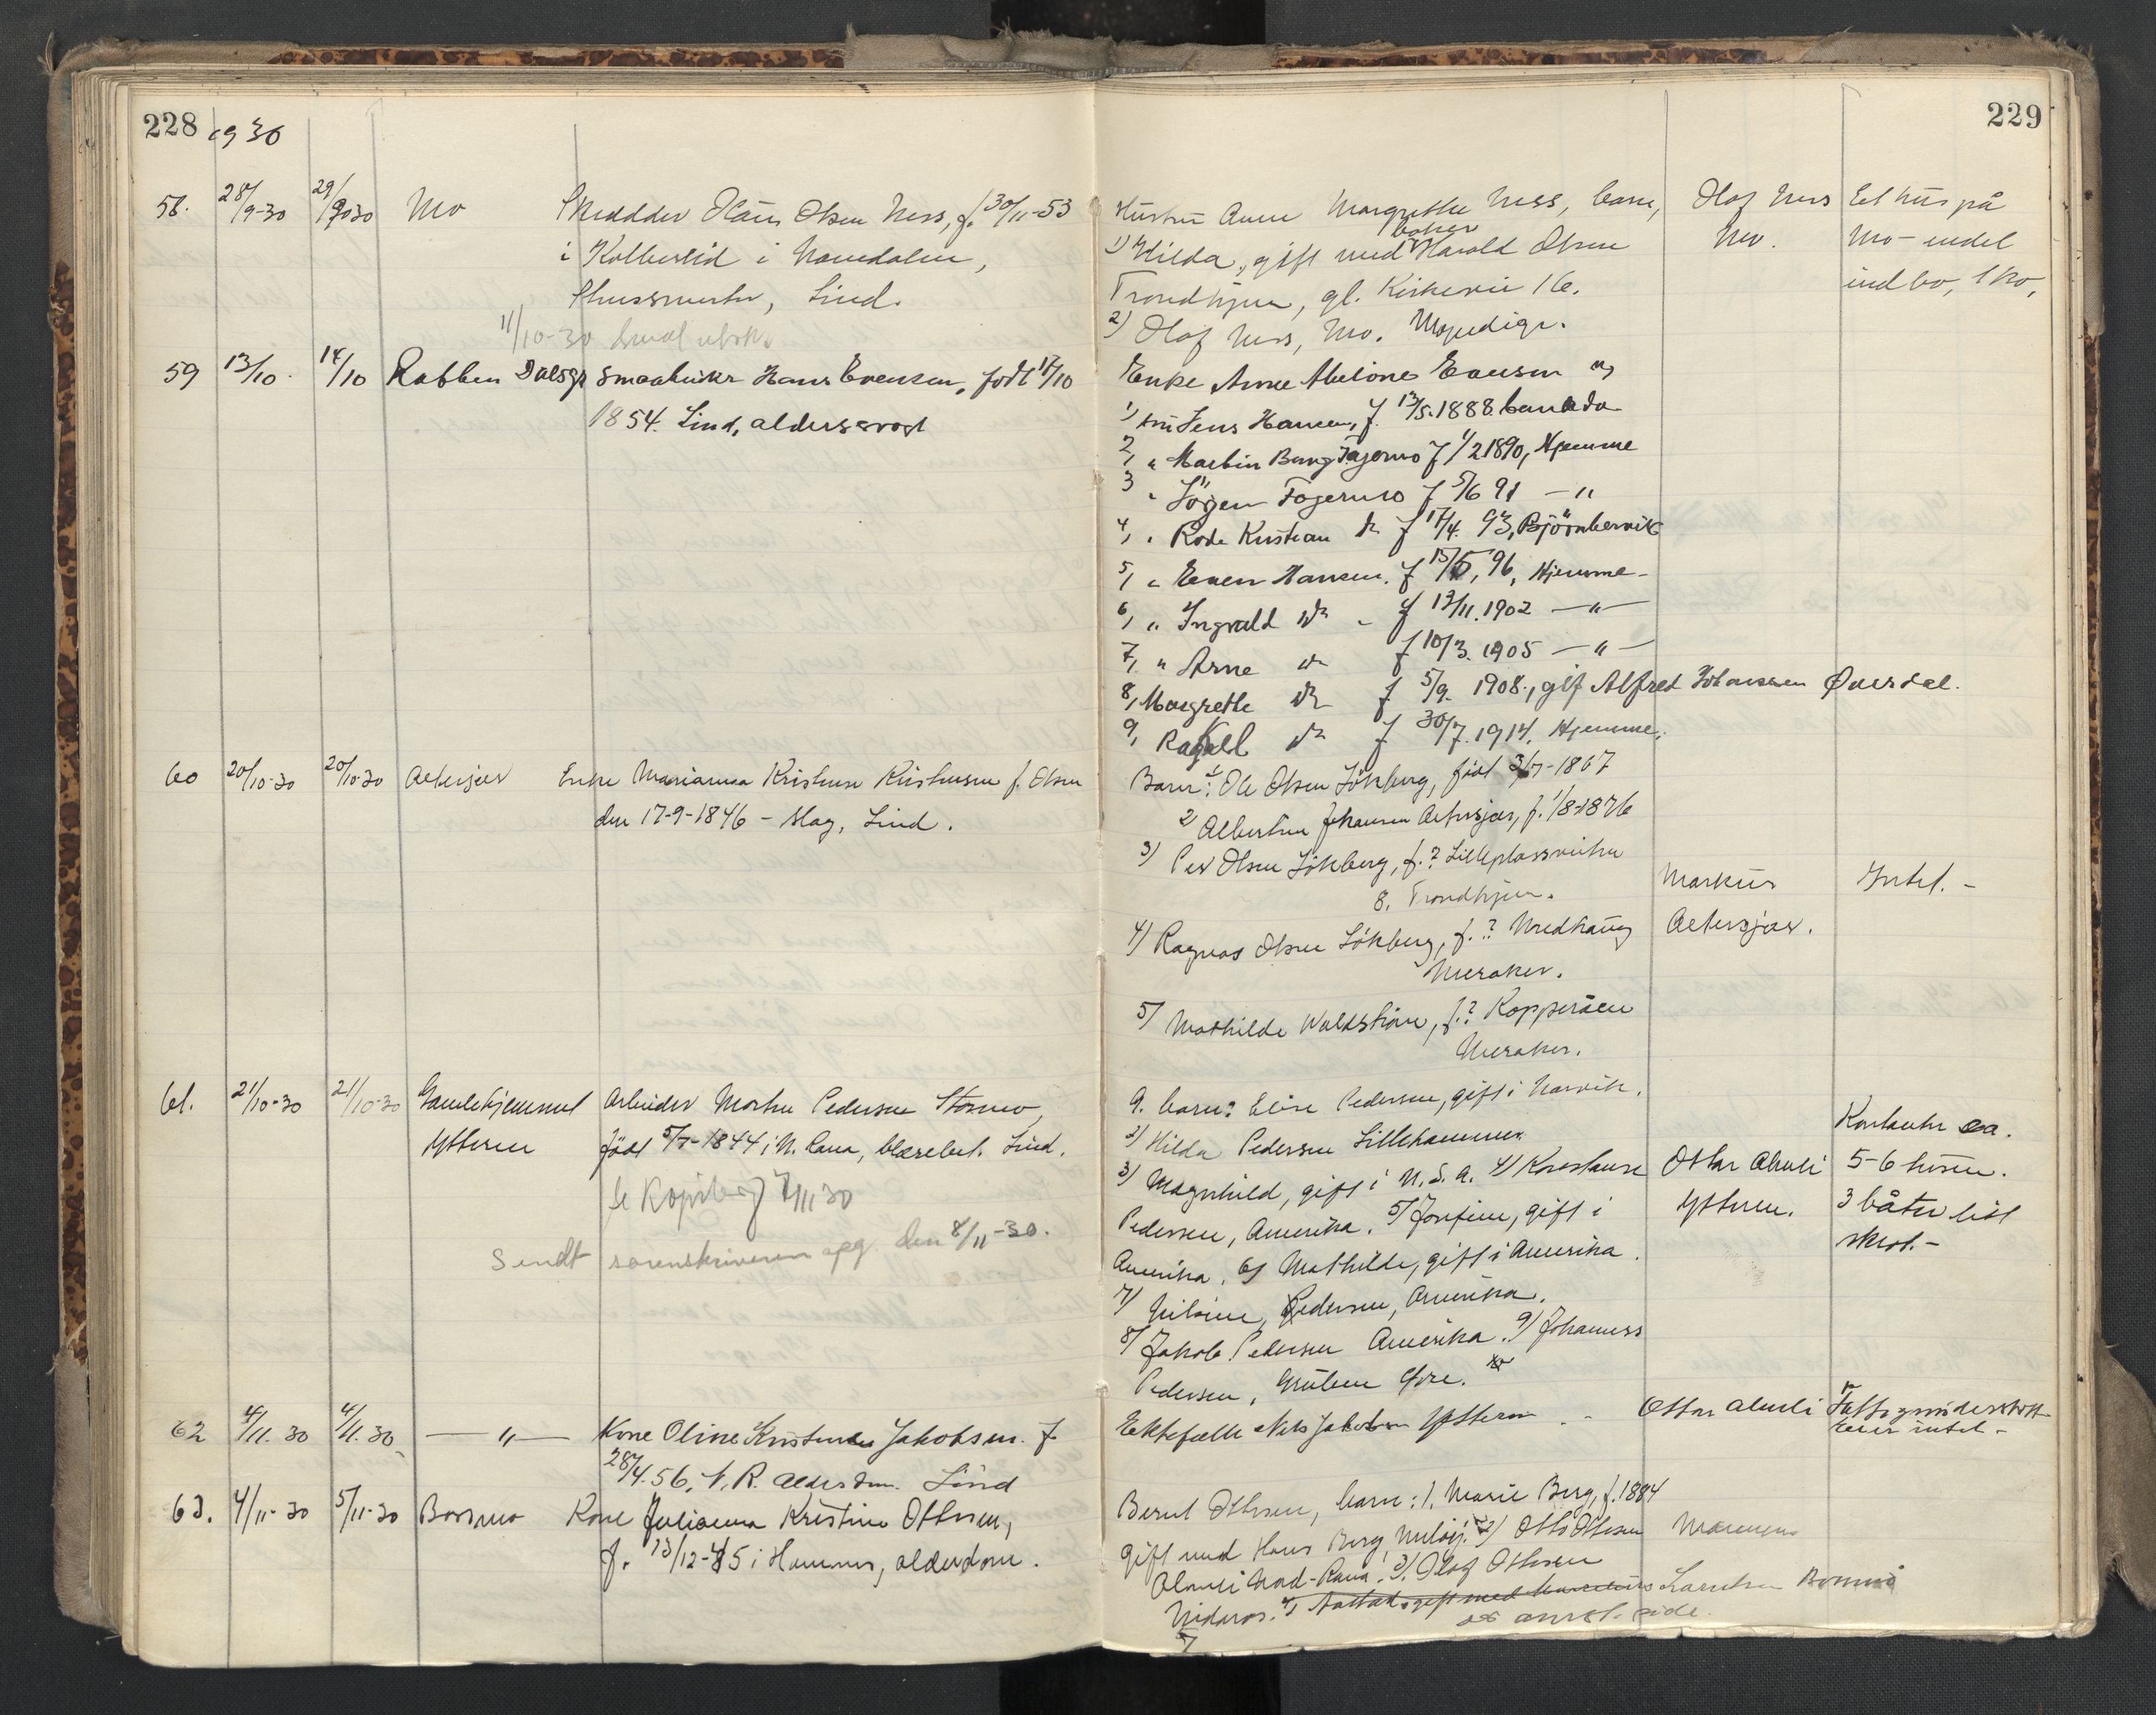 228 1930
229
58. 28/9-30 29/9-30 Mo Skredder Hans Olsen Ness, f. 30/11-53
i Kolbereid i Namdalen,
Slussmester, Lind.
11/10-30
Hustru Anne Margrethe Ness, barn,
1) Hilda, gift med baker Harald Olsen
Trondhjem, gl. Kirkevei 16.
2) Olaf Ness, Mo. Myndige.
Olaf Ness
Mo.
Et hus på
Mo - endel
indbo, 1 ko,
59 13/10. 14/10 Rabben Dalsgr Smaabruker Hans Evensen, født 17/10
1854. Lind, alderssvag
Enke Anne Abelone Evensen og
1) søn Jens Hansen, f. 13/5.1888. Canada
2, " Martin Bang Fagermo f 1/2 1890, Hjemme
3 " Jörgen Fagermo f 5/6 91 — "
4, " Rode Kristian do f 17/4. 93, Björnbervik
5, " Even Hansen. f 15/5, 96, Hjemme -
6, " Ingvald do - f 13/11. 1902 — " —
7, " Arne do f 10/3. 1905 — " —
8, Margrethe do f 5/9. 1908., gif Alfred Johanssen Øverdal.
9, Rakel do f 30/7. 1914. Hjemme.
60 20/10-30 20/10-30 Altersjør Enke Marianna Kristine Kristensen f. Olsen
den 17-9-1846 - slag, Lind.
Barn: 1 Ole Olsen Lökberg, født 3/7-1867
2) Albertine Johansen Altersjør, f. 1/8-1876
3) Per Olsen Lökberg, f. ? Lilleplassveien
8, Trondhjem.
4) Ragnar Olsen Lökberg, f. ? Nedhaug
Meraker.
5) Mathilde Waldstrøm, f. ? Kopperåen
Meraker.
Markus
Altersjør.
Intet. -
61. 21/10-30 21/10-30 Gamlehjemmet
Ytteren
Arbeider Morten Pedersen Stormo,
født 5/7-1844 i N. Rana, blærebet. Lind.
Se Kopiberg 7/11 30
Sendt sorenskriveren opg. den 8/11-30.
9. barn: Elise Pedersen, gift i Narvik.
2) Hilda Pedersen Lillehammer
3) Magnhild, gift i U.S.A. 4) Konstanse
Pedersen, Amerika. 5) Josefine, gift i
Amerika. 6) Mathilde, gift i Amerika.
7) Nilsine, Pedersen, Amerika.
8) Jakob Pedersen Amerika. 9) Johannes
Pedersen, Gruben
Ottar Alneli
Ytteren.
Kontanter ca.
5-6 hundre.
3 båter litt
skrot. -
62 4/11. 30 4/11. 30 — " — Kone Oline Kristine Jakobsen. f
28/4. 56, N. R. Alderdom. Lind
Ektefelle Nils Jakobsen Ytteren -
Ottar Alneli
Fattigunderstøtt
Eier intet -
63. 4/11-30 5/11-30 Bossmo Kone Julianna Kristine Ottesen,
f. 13/12-45 i Hemnes, alderdom.
Bernt Ottesen, barn: 1. Marie Berg, f. 1884
gift med Hans Berg, 2) Otto Ottesen
Nord-Rana. 3) Olaf Ottesen
Nidaros. 4) gift med Larsen
5)